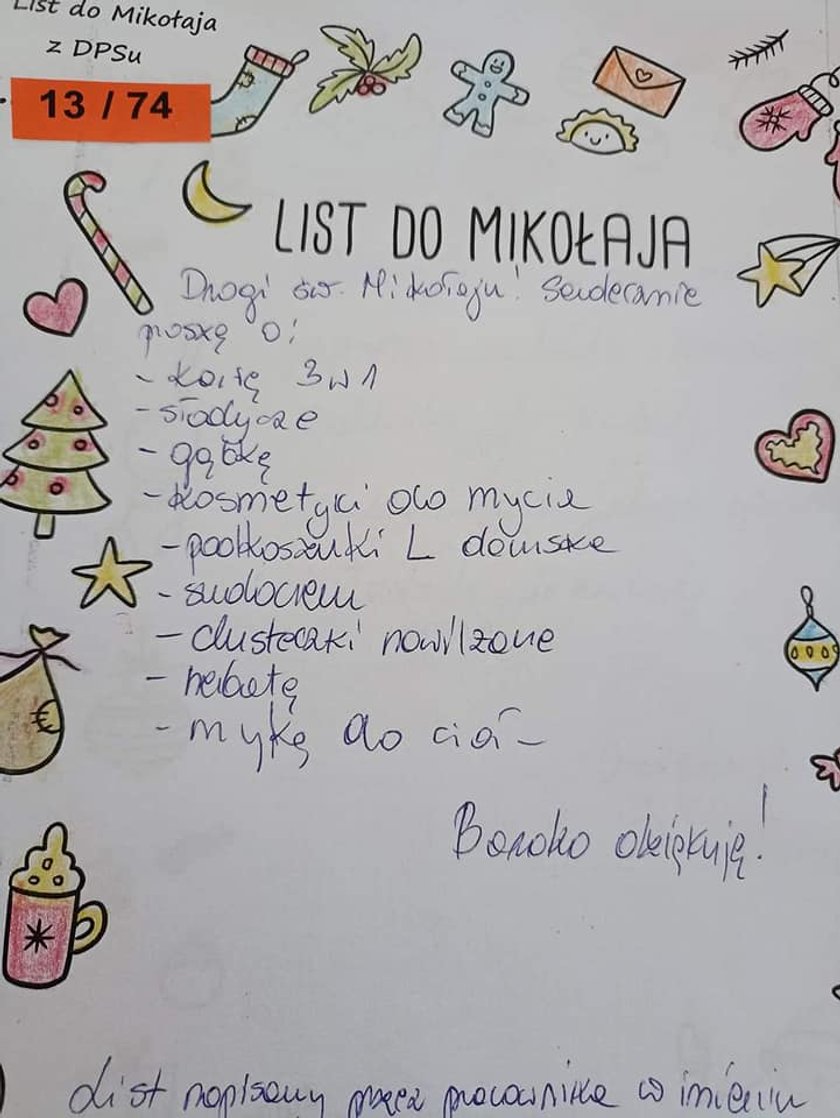 List do Mikołaja
z DPSu
13 / 74
LIST DO MIKOŁAJA
Drogi św. Mikołaju! Serdecznie
proszę o:
- kawę 3w1
- słodycze
- gąbkę
- kosmetyki do mycia
- podkoszulki L damskie
- sudocrem
- chusteczki nawilżone
- herbatę
- myjkę do ciał-
Bardzo dziękuję!
List napisany przez pracownika w imieniu